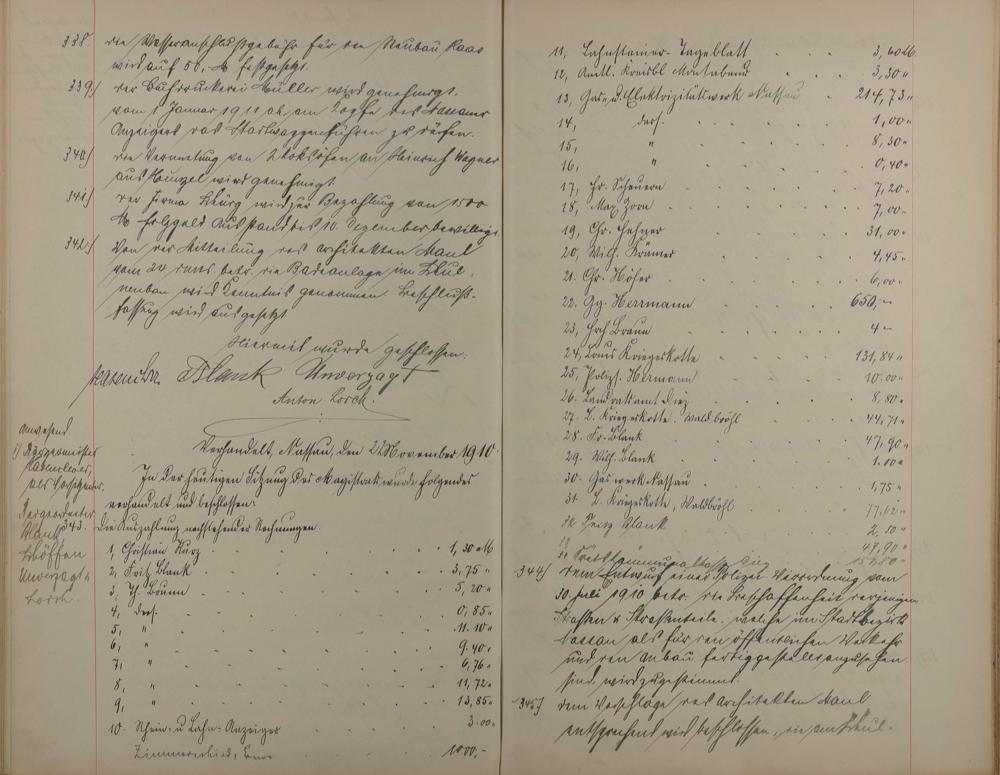 338. die Wasseranschlußgebühr für den Neubau Kaas
wird auf 50,- M festgesetzt.
339) der Buchdruckerei Müller wird genehmigt
vom 1 Januar 1911 ab, am Kopfe des Nassauer
Anzeigers das Stadtwappen führen zu dürfen.
340) die Vermietung von 2 Koksöfen an Heinrich Wagner
aus wird genehmigt.
341) der Firma wird zur Bezahlung von 1500
M Holzgeld Ausstand bis 10. Dezember bewilligt.
342) Von der Mitteilung des Architekten Maul
vom 24 ds. betr. die Badeanlage im Schul-
neubau wird Kenntnis genommen. Beschluß-
fassung wird ausgesetzt
Hiermit wurde geschlossen.
Hasenclever. Blank Unverzagt
Anton Lorch.
Anwesend
1) Bürgermeister
Hasenclever,
als Vorsitzender,
Beigeordneter
Blank
Schöffen
Unverzagt u
Lorch.
Verhandelt, Nassau, den 22 November 1910.
In der heutigen Sitzung des Magistrats wurde folgendes
verhandelt und beschlossen:
343. Die Auszahlung nachstehender Rechnungen.
1, Christian Kurz 1,30 M
2, Fritz Blank 3,75 "
3, Th. Bruun 5,20 "
4, ders. 0,85 "
5, " 11.10 "
6, " 9.40 "
7, " 6,76 "
8, " 11,72 "
9, " 13,85 "
10. Rhein- u Lahn-Anzeiger 3.00 "
1000,-
11, Lahnsteiner-Tageblatt 3,60 M
12, Amtl. Kreisbl Montabaur 3,30 "
13, Gas- u. Elektrizitätswerk Nassau 214,73 "
14, ders. 1,00 "
15, " 8,30 "
16, " 0,40 "
17, Fr. Scheuern 7,20 "
18, Max Zorn 7,00 "
19, Chr. 31,00 "
20, Wilh. Krämer 4,45 "
21. Chr. Höher 6,00 "
22. Gg. Herrmann 650,-
23, Hch Braun 4 -
24, Louis Kriegeskotte 131,84 "
25, Polizs. Hermann 10.00 "
26. Landratsamt Diez 8,80 "
27. L. Kriegeskotte. Waldbröhl 44,71 "
28. Fr. Blank 47,90 "
29. Wilh. Blank 1.00 "
30. Gaswerk Nassau 1,75 "
31. L. Kriegeskotte, Waldbröhl 77,62 "
32. Fritz Blank 2,50 "
47,90 "
344) dem Entwurf einer Polizei Verordnung vom
30 Juli 1910 betr. die Beschaffenheit derjenigen
Straßen u Straßenteile, welche im Stadtbezirk
Nassau als für den öffentlichen Verkehr
und den Anbau fertiggestellt anzusehen
sind, wird zugestimmt.
345) dem Vorschlage des Architekten Maul
entsprechend wird beschlossen, die am Schul-